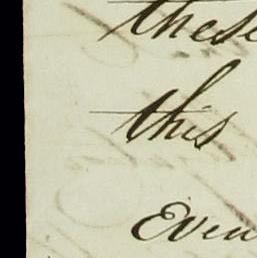 these
this
Even